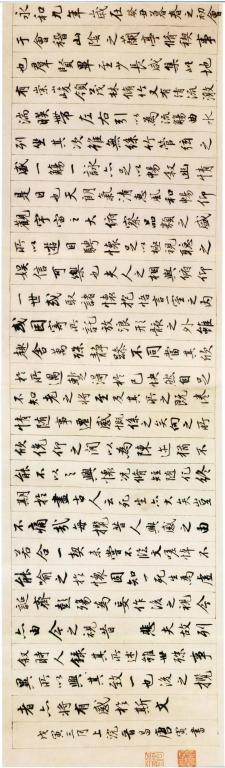 永和九年歲在癸丑暮春之初會
于會稽山陰之蘭亭脩禊事
也羣賢畢至少長咸集此地
有崇山峻領茂林脩竹又有清流激
湍暎帶左右引以為流觴曲水
列坐其次雖無絲竹管絃之
盛一觴一詠亦足以暢叙幽情
是日也天朗氣清惠風和暢仰
觀宇宙之大俯察品類之盛
所以遊目騁懷足以極視聽之
娛信可樂也夫人之相與俯仰
一世或取諸懷抱悟言一室之內
或因寄所託放浪形骸之外雖
趣舍萬殊靜躁不同當其欣
於所遇蹔得於己快然自足
不知老之將至及其所之既惓
情隨事遷感慨係之矣向之所
欣俛仰之間以為陳迹猶不
能不以之興懷況脩短隨化終
期於盡古人云死生亦大矣豈
不痛哉每攬昔人興感之由
若合一契未嘗不臨文嗟悼不
能喻之於懷固知一死生為虛
誕齊彭殤為妄作後之視今
亦由今之視昔 悲夫故列
叙時人錄其所述雖世殊事
異所以興懷其致一也後之攬
者亦將有感於斯文
戊寅三月上浣 晉昌唐寅書